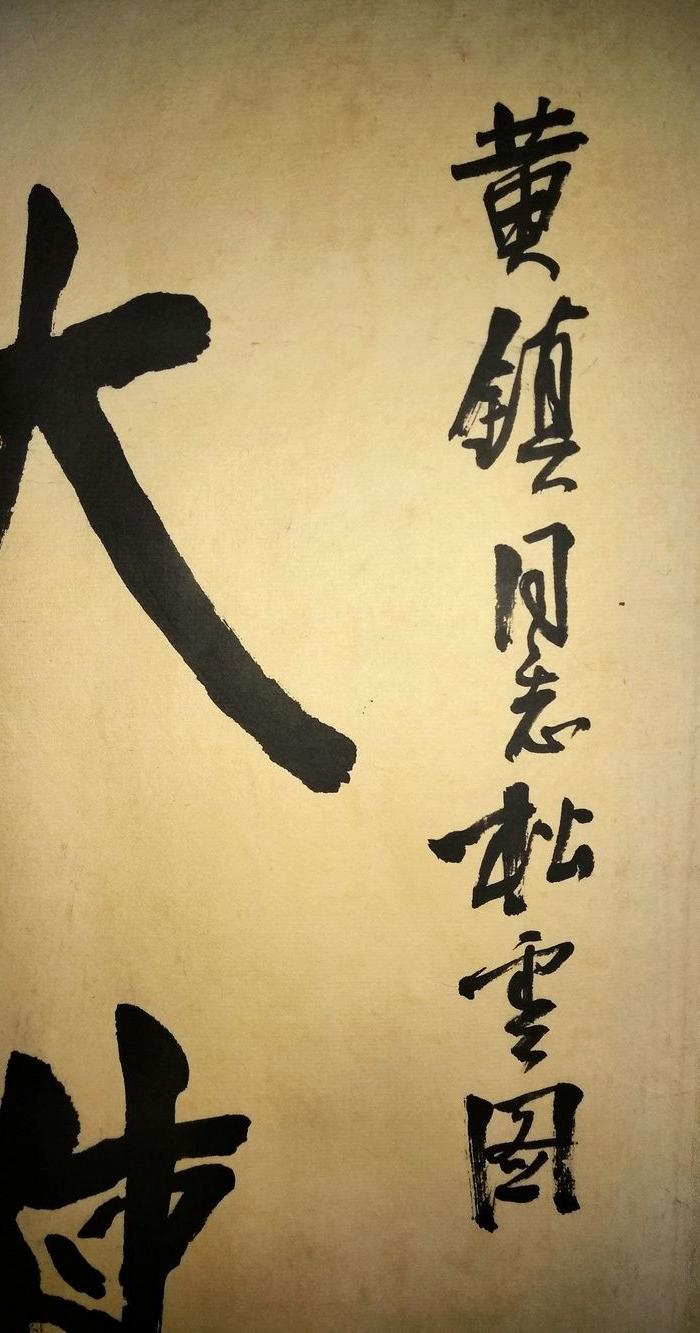 黄鎮同志松雲图
大